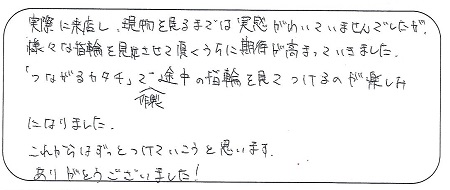 実際に来店し、現物を見るまでは実感がわいていませんでしたが、
様々な指輪を見させて頂くうちに期待が高まっていきました。
「つながるカタチ」で作製途中の指輪を見てつけるのが楽しみ
になりました。
これからはずっとつけていこうと思います。
ありがとうございました!